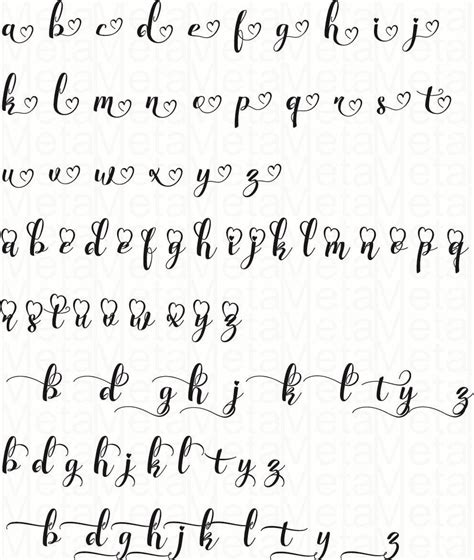 a b c d e f g h i j
k l m n o p q r s t
u v w x y z
a b c d e f g h i j k l m n o p q
r s t u v w x y z
b d g h j k l t y z
b d g h j k l t y z
b d g h j k l t y z